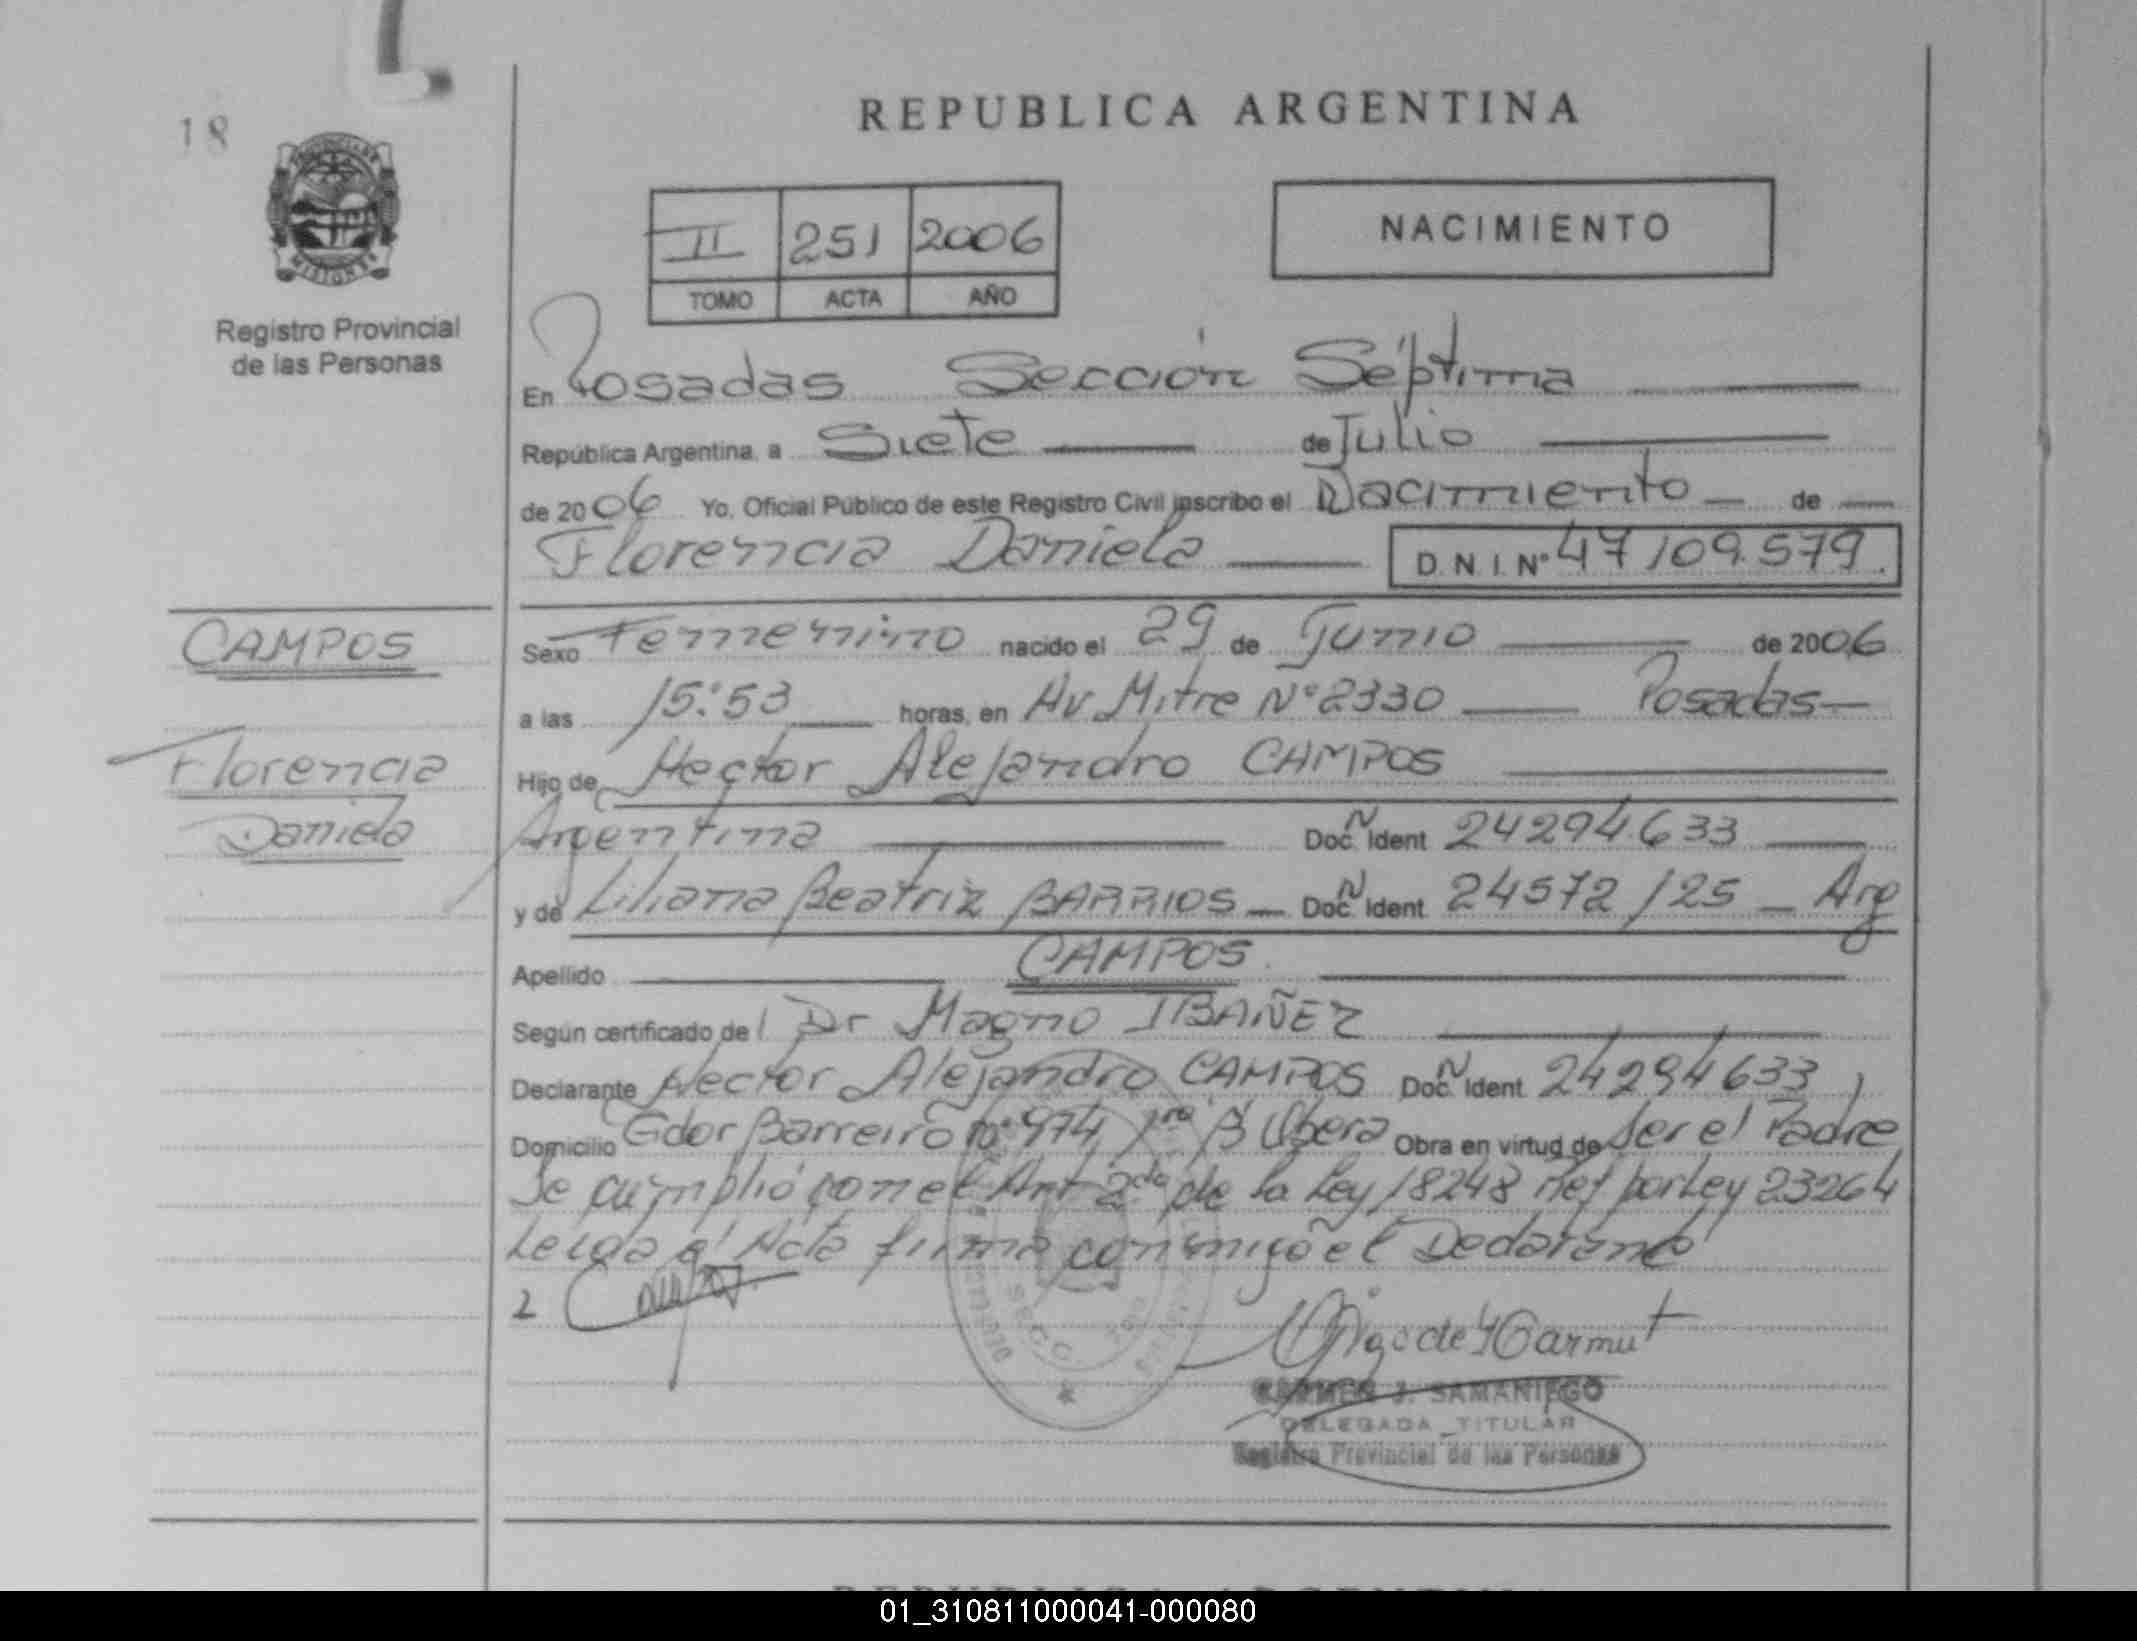 18
REPUBLICA ARGENTINA
II 251 2006
TOMO ACTA AÑO
NACIMIENTO
MISIONES
Registro Provincial
de las Personas
En Posadas Sección Séptima
República Argentina, a Siete de Julio
de 2006 Yo, Oficial Público de este Registro Civil inscribo el Nacimiento de
Florencia Daniela D.N.I. Nº 47109.579
CAMPOS
Florencia
Daniela
Sexo Femenino nacido el 29 de Junio de 2006
a las 15:53 horas, en Av Mitre Nº 2330 Posadas
Hijo de Hector Alejandro CAMPOS
Argentina Doc N Ident 24294.633
y de Liliana Beatriz BARRIOS Doc N Ident 24572125 Arg
Apellido CAMPOS
Según certificado del Dr Magno IBAÑEZ
Declarante Hector Alejandro CAMPOS Doc N Ident 24294633
Domicilio Gdor Barreiro Nº 974 Obera Obra en virtud de Ser el Padre
Se cumplió con el Art 2do de la Ley 18248 por Ley 23264
Leida el Acta firma conmigo el Declarante
2
CARMEN J. SAMANIEGO
DELEGADA TITULAR
Registro Provincial de las Personas
REPUBLICA ARGENTINA
01_310811000041-000080